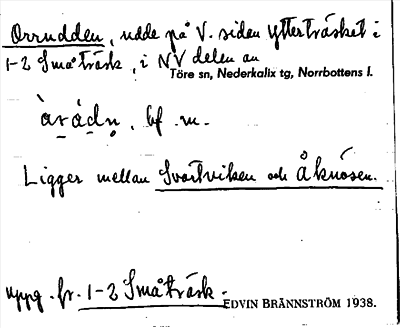 Orrudden, udde på V. siden Ytterträsket i
1-2 Småträsk, i NV delen av
Töre sn, Nederkalix tg, Norrbottens l.
àrádṇ, bf. m.
Ligger mellan Svartviken och Åknösen.
uppg. fr. 1-2 Småträsk.
EDVIN BRÄNNSTRÖM 1938.